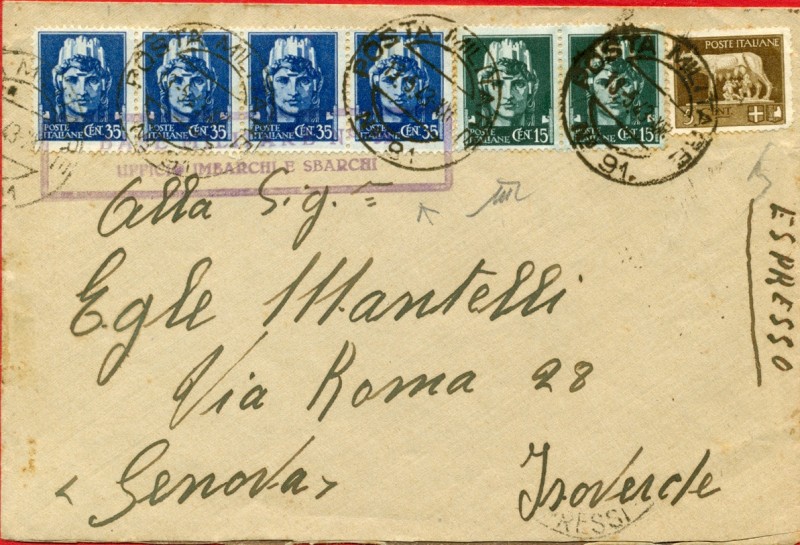 POSTE ITALIANE CENT. 35
POSTE ITALIANE CENT. 35
POSTE ITALIANE CENT. 35
POSTE ITALIANE CENT. 35
POSTE ITALIANE CENT. 15
POSTE ITALIANE CENT. 15
POSTE ITALIANE
POSTA MILITARE
POSTA MILITARE
91
POSTA MILITARE
91
UFFICIO IMBARCHI E SBARCHI
ESPRESSO
Alla Sig.
Egle Mantelli
Via Roma 28
<Genova> Isoverde
RESSI